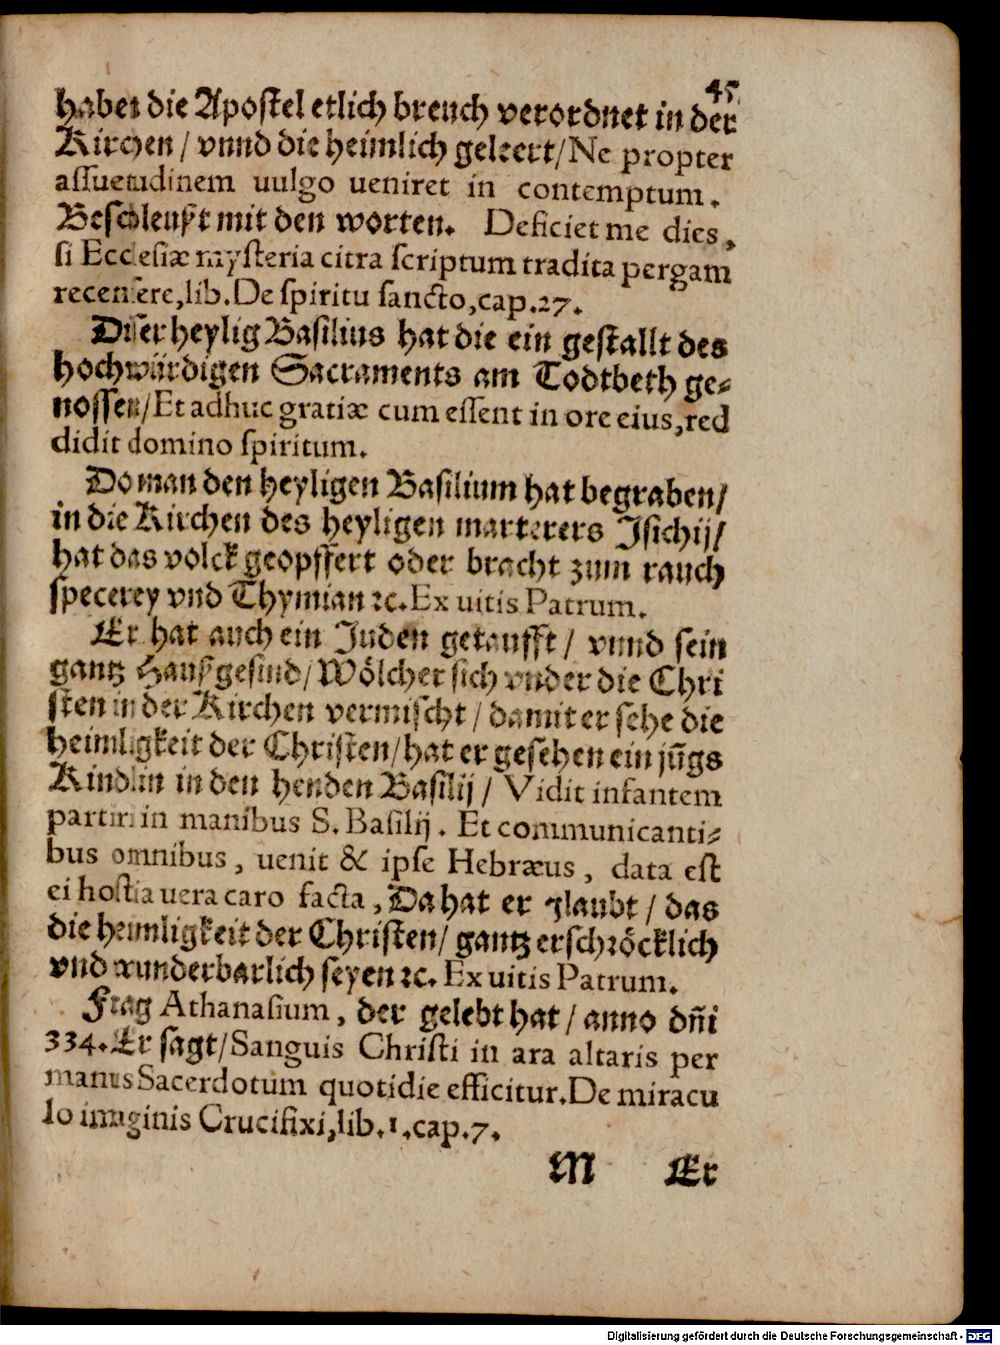 45
haben die Apostel etlich breuch verordnet in der
Kirchen / vnnd die heimlich geleert / Ne propter
assuetudinem uulgo ueniret in contemptum.
Beschleußt mit den worten. Deficiet me dies,
si Ecclesiæ mysteria citra scriptum tradita pergam
recensere, lib. De spiritu sancto, cap. 27.
Diser heylig Basilius hat die ein gestallt des
hochwürdigen Sacraments am Todtbeth ge⸗
nossen / Et adhuc gratiæ cum essent in ore eius, red
didit domino spiritum.
Do man den heyligen Basilium hat begraben /
in die Kirchen des heyligen marterers Isichij /
hat das volck geopffert oder bracht zum rauch
specerey vnd Thymian ꝛc. Ex uitis Patrum.
Er hat auch ein Juden getaufft / vnnd sein
gantz Haußgesind / Wölcher sich vnder die Chri
sten in der Kirchen vermischt / damit er sehe die
heimligkeit der Christen / hat er gesehen ein jũgs
Kindlin in den henden Basilij / Vidit infantem
partiri in manibus S. Basilij. Et communicanti⸗
bus omnibus, uenit & ipse Hebræus, data est
ei hostia uera caro facta, Da hat er glaubt / das
die heimligkeit der Christen / gantz erschröcklich
vnd wunderbarlich seyen ꝛc. Ex uitis Patrum.
Frag Athanasium, der gelebt hat / anno dñi
334. Er sagt / Sanguis Christi in ara altaris per
manus Sacerdotum quotidie efficitur. De miracu
lo imaginis Crucifixi, lib. 1. cap. 7.
M Er
Digitalisierung gefördert durch die Deutsche Forschungsgemeinschaft - DFG